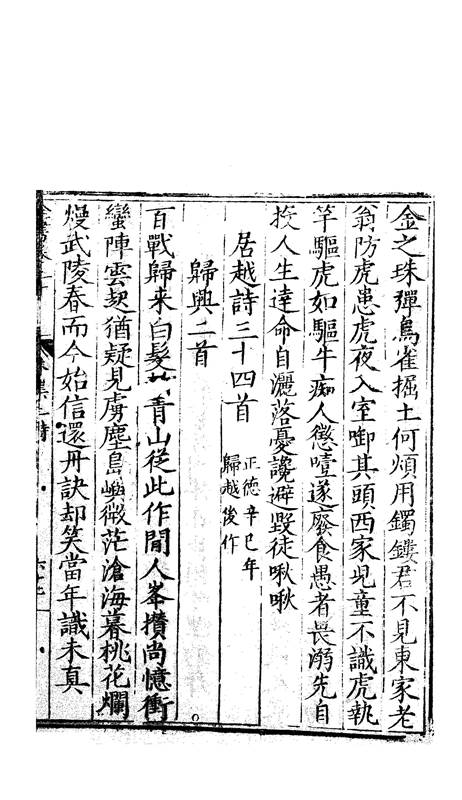 金之珠彈鳥雀掘土何煩用鐲鏤君不見東家老
翁防虎患虎夜入室啣其頭西家兒童不識虎執
竿驅虎如驅牛痴人懲噎遂廢食愚者畏溺先自
投人生達命自灑落憂讒避毀徒啾啾
居越詩三十四首
正德辛巳年
歸越後作
歸興二首
百戰歸來白髮新青山從此作閒人峯攢尚憶衝
蠻陣雲起猶疑見虜塵島嶼微茫滄海暮桃花爛
熳武陵春而今始信還丹訣却笑當年識未真